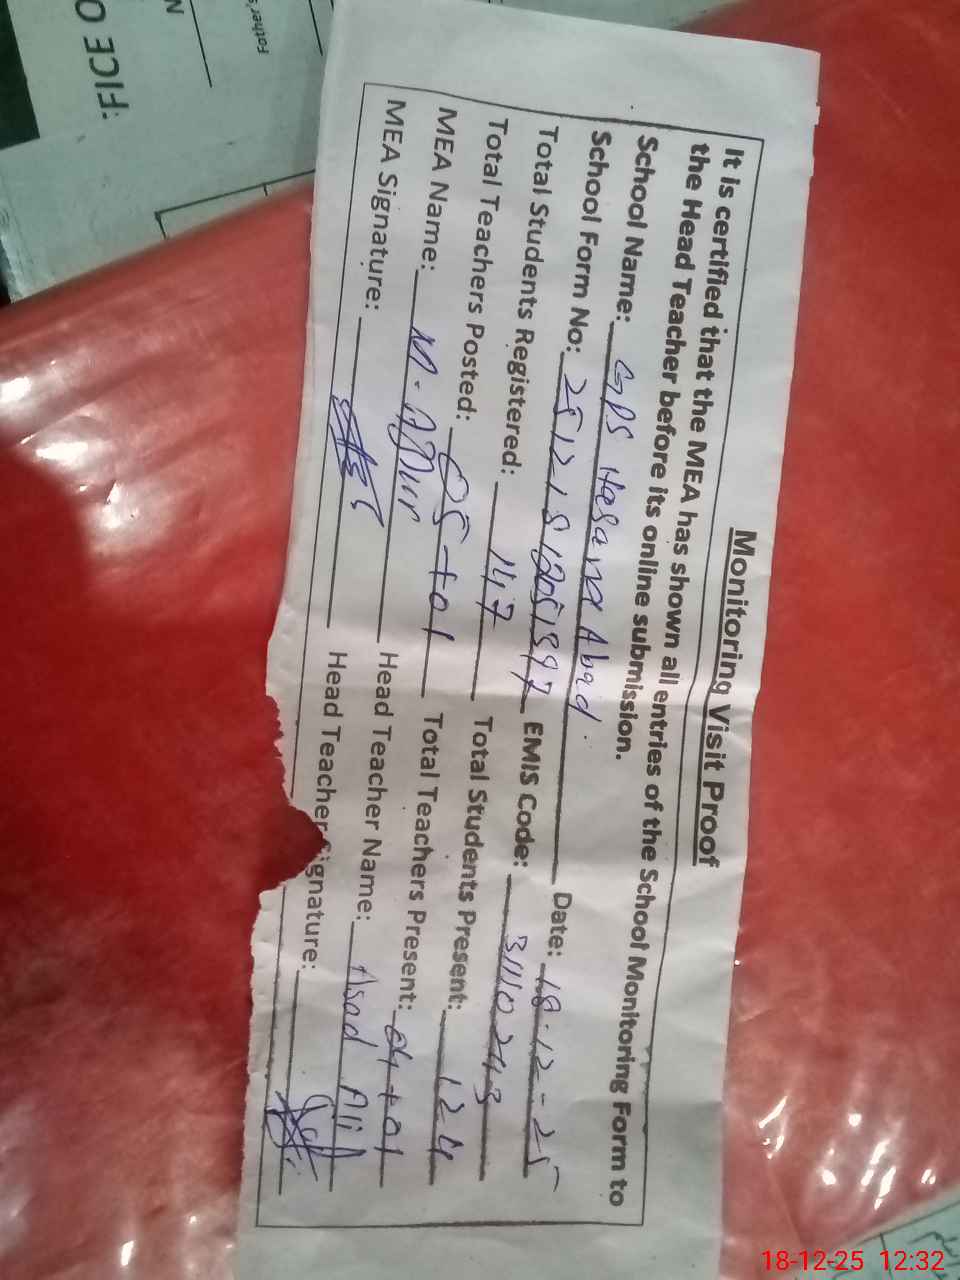 Monitoring Visit Proof
It is certified that the MEA has shown all entries of the School Monitoring Form to
the Head Teacher before its online submission.
School Name: GPS Hasana Abad. Date: 18-12-25
School Form No: EMIS Code: 31110243
Total Students Registered: 147 Total Students Present: 124
Total Teachers Posted: 05+01 Total Teachers Present: 04+01
MEA Name: Head Teacher Name: Asad Ali
MEA Signature: Head Teacher Signature:
FICE O
N
Father's
18-12-25 12:32